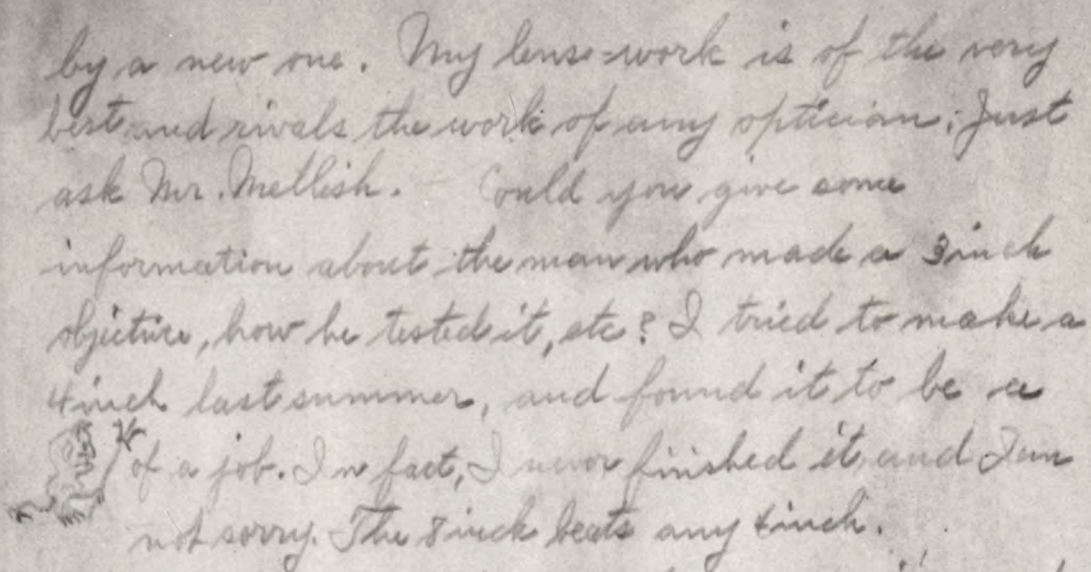 by a new one. My lens-work is of the very
best and rivals the work of any optician; Just
ask Mr. Mellish. Could you give some
information about the man who made a 3inch
objective, how he tested it, etc? I tried to make a
4inch last summer, and found it to be a
of a job. In fact, I never finished it, and I am
not sorry. The 8inch beats any 4inch.